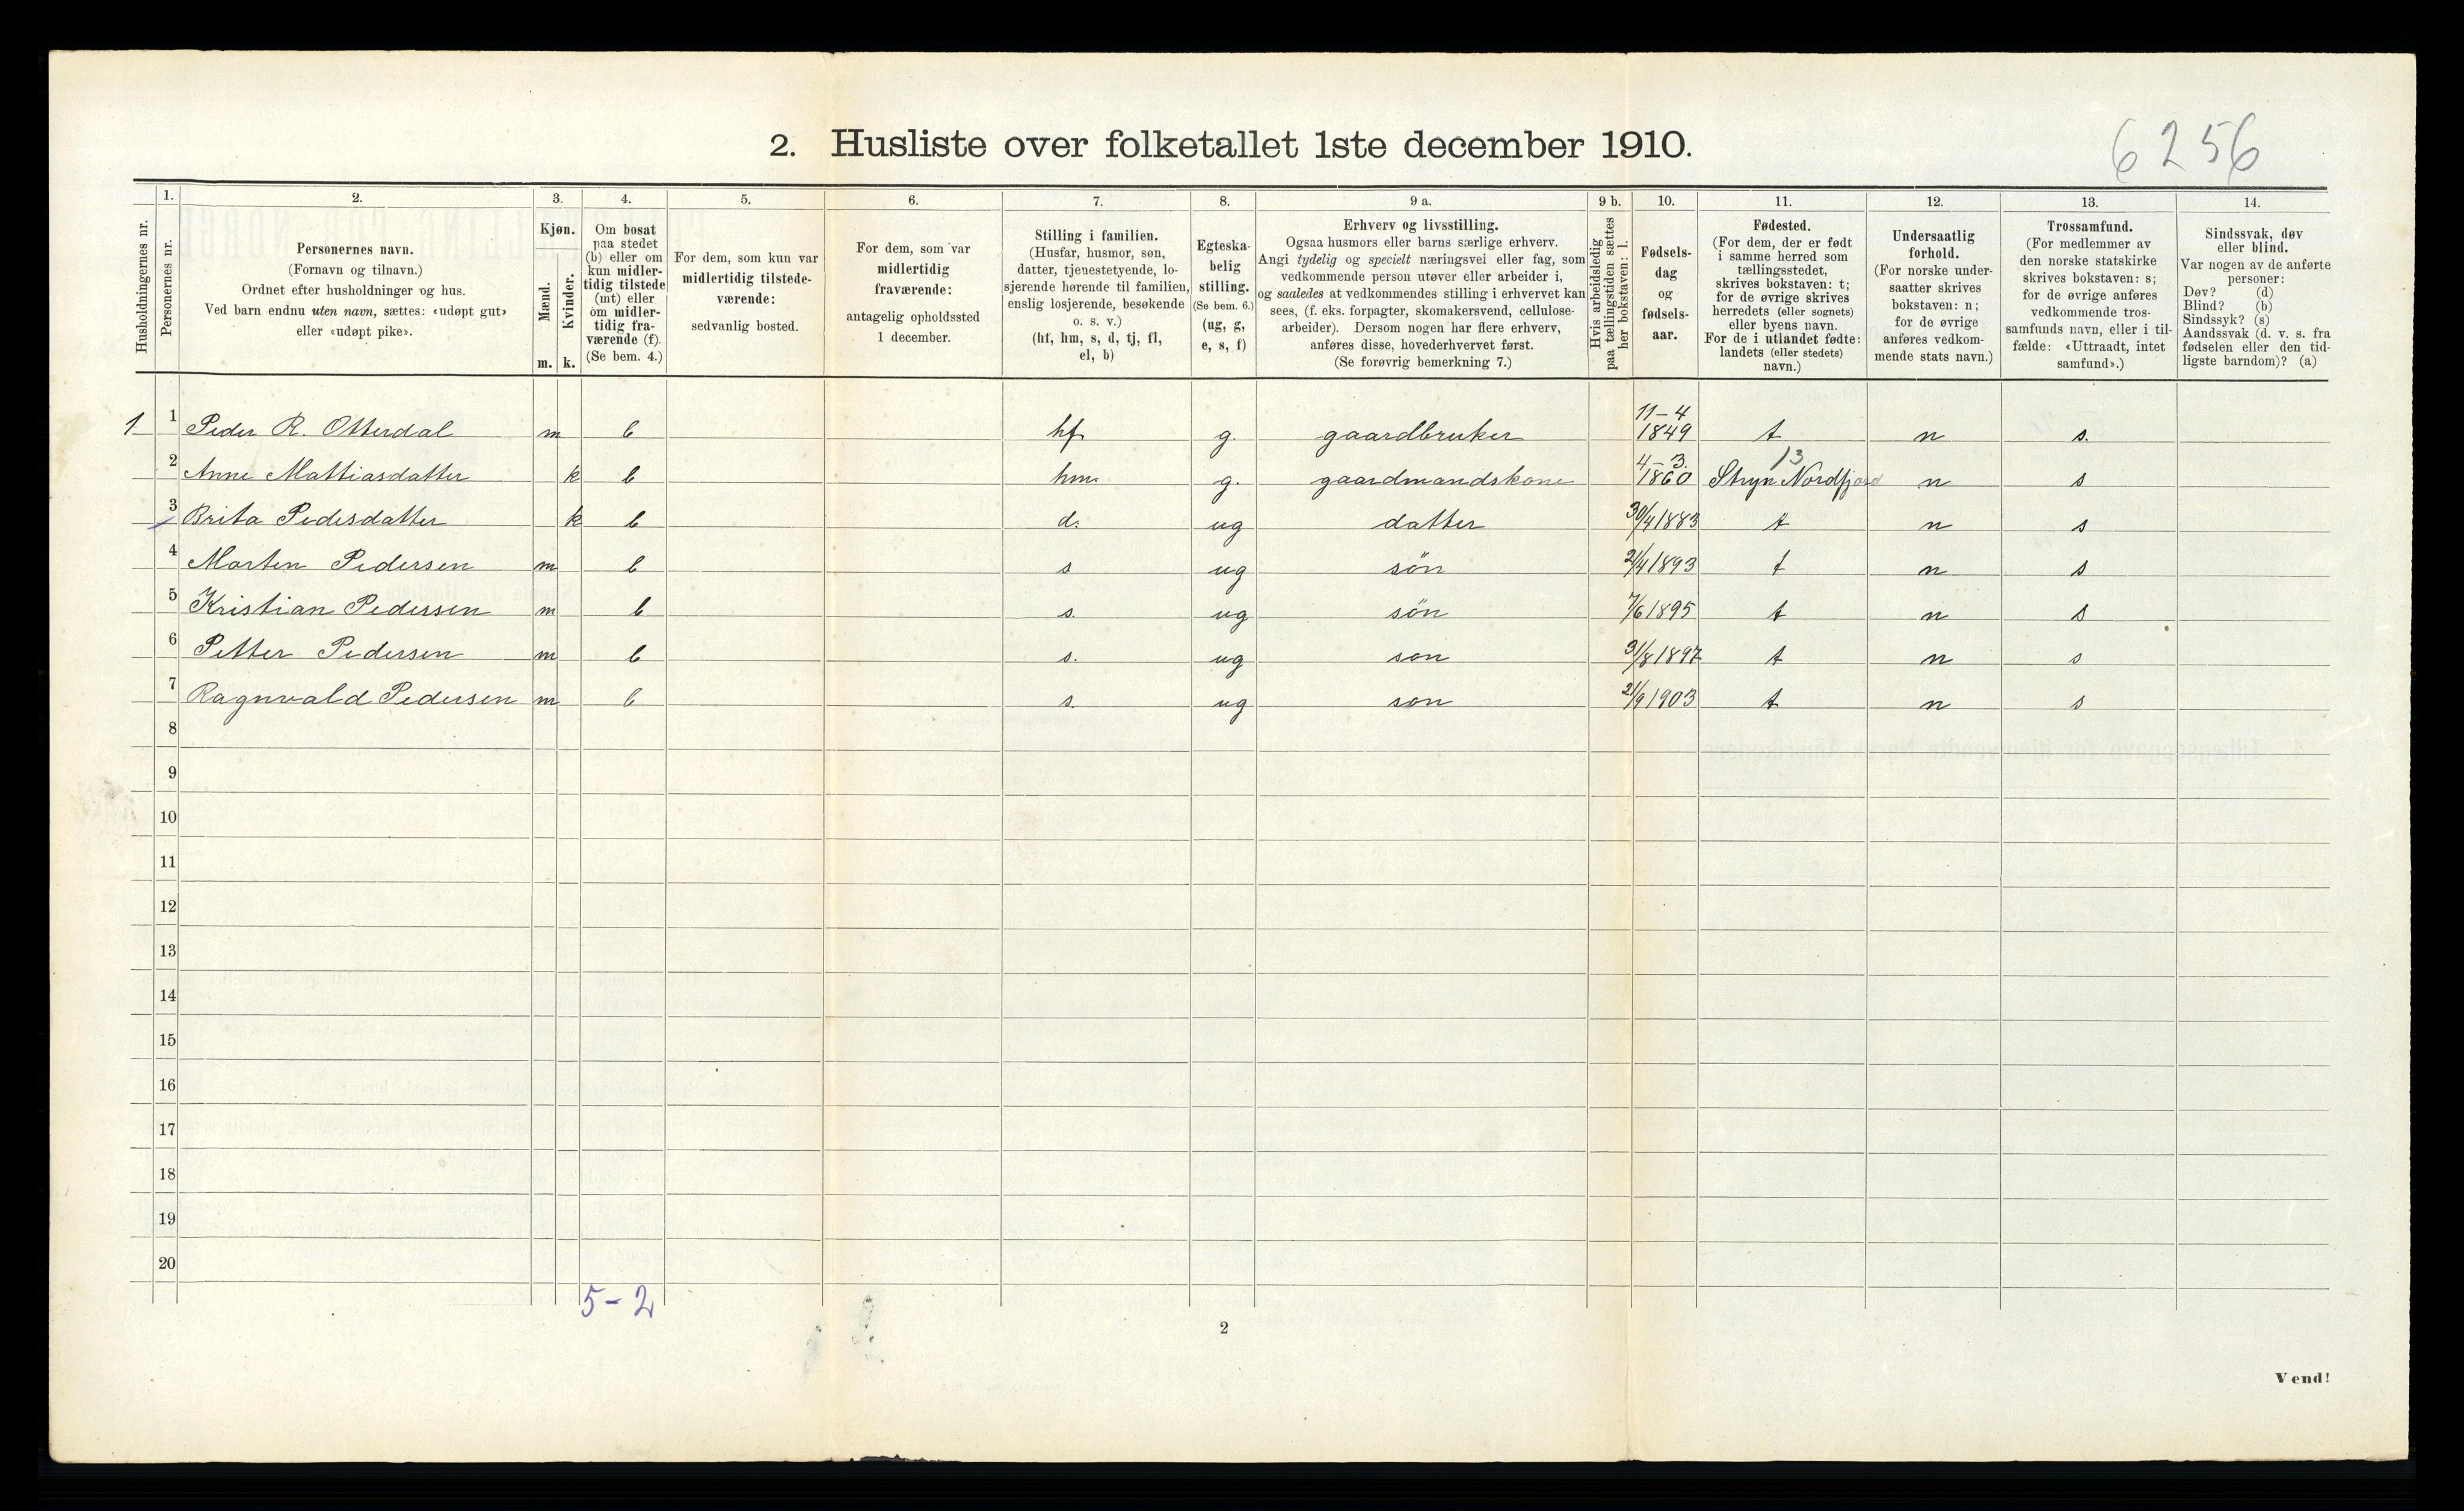 6256
2. Husliste over folketallet 1ste december 1910.
Husholdningernes nr.
1.
Personernes nr.
2.
Personernes navn.
(Fornavn og tilnavn.)
Ordnet efter husholdninger og hus.
Ved barn endnu uten navn, sættes: «udøpt gut»
eller «udøpt pike».
3.
Kjøn.
Mænd.
m.
Kvinder.
k.
4.
Om bosat
paa stedet
(b) eller om
kun midler-
tidig tilstede
(mt) eller
om midler-
tidig fra-
værende (f).
(Se bem. 4.)
5.
For dem, som kun var
midlertidig tilstede-
værende:
sedvanlig bosted.
6.
For dem, som var
midlertidig
fraværende:
antagelig opholdssted
1 december.
7.
Stilling i familien.
(Husfar, husmor, søn,
datter, tjenestetyende, lo-
sjerende hørende til familien,
enslig losjerende, besøkende
o. s. v.)
(hf, hm, s, d, tj, fl,
el, b)
8.
Egteska-
belig
stilling.
(Se bem. 6.)
(ug, g,
e, s, f)
9 a.
Erhverv og livsstilling.
Ogsaa husmors eller barns særlige erhverv.
Angi tydelig og specielt næringsvei eller fag, som
vedkommende person utøver eller arbeider i,
og saaledes at vedkommendes stilling i erhvervet kan
sees, (f. eks. forpagter, skomakersvend, cellulose-
arbeider). Dersom nogen har flere erhverv,
anføres disse, hovederhvervet først.
(Se forøvrig bemerkning 7.)
9 b.
Hvis arbeidsledig
paa tællingstiden sættes
her bokstaven: l.
10.
Fødsels-
dag
og
fødsels-
aar.
11.
Fødested.
(For dem, der er født
i samme herred som
tællingsstedet,
skrives bokstaven: t;
for de øvrige skrives
herredets (eller sognets)
eller byens navn.
For de i utlandet fødte:
landets (eller stedets)
navn.)
12.
Undersaatlig
forhold.
(For norske under-
saatter skrives
bokstaven: n;
for de øvrige
anføres vedkom-
mende stats navn.)
13.
Trossamfund.
(For medlemmer av
den norske statskirke
skrives bokstaven: s;
for de øvrige anføres
vedkommende tros-
samfunds navn, eller i til-
fælde: «Uttraadt, intet
samfund».)
14.
Sindssvak, døv
eller blind.
Var nogen av de anførte
personer:
Døv? (d)
Blind? (b)
Sindssyk? (s)
Aandssvak (d. v. s. fra
fødselen eller den tid-
ligste barndom)? (a)
1 1 Peder R. Otterdal m b hf g. gaardbruker 11-4 1849 t n s.
2 Anne Mattiasdatter k b hm g. gaardmandskone 4-3. 1860 13 Stryn Nordfjord n s
3 Brita Pedesdatter k b d. ug datter 30/4 1883 t n s
4 Morten Pedersen m b s ug søn 21/4 1893 t n s
5 Kristian Pedersen m b s. ug søn 7/6 1895 t n s
6 Petter Pedersen m b s. ug son 31/8 1897 t n s
7 Ragnvald Pedersen m b s. ug son 21/9 1903 t n s
8
9
10
11
12
13
14
15
16
17
18
19
20
5-2
2
Vend!